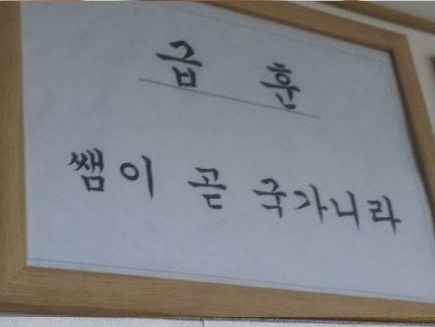 급 훈
쌤이 곧 국가니라